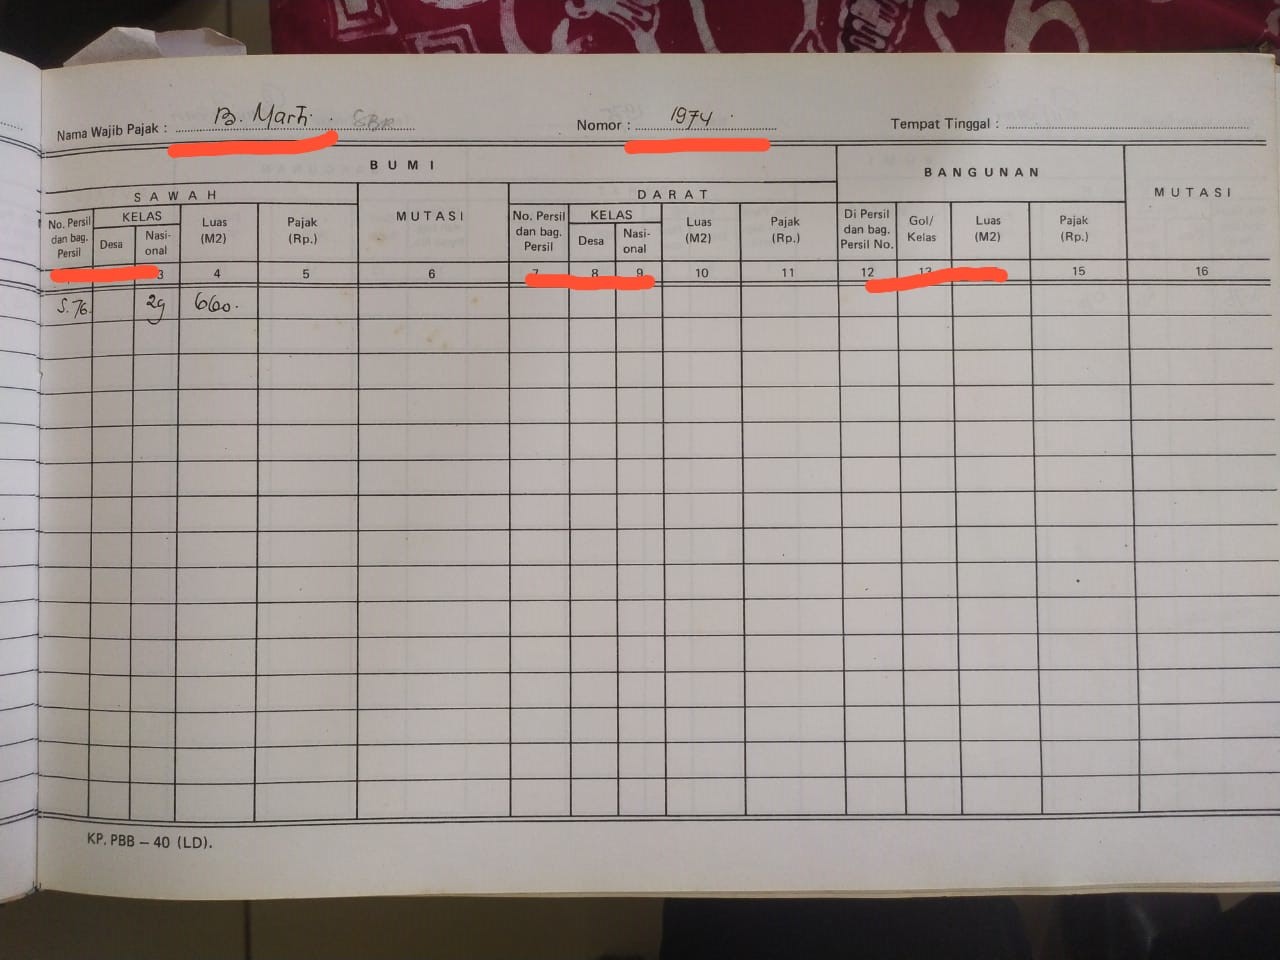 Nama Wajib Pajak : B. Marti SBR Nomor : 1974 Tempat Tinggal :
B U M I
B A N G U N A N
M U T A S I
S A W A H
M U T A S I
D A R A T
No. Persil dan bag. Persil
KELAS
Desa
Nasi-onal
Luas (M2)
Pajak (Rp.)
No. Persil dan bag. Persil
KELAS
Desa
Nasi-onal
Luas (M2)
Pajak (Rp.)
Di Persil dan bag. Persil No.
Gol/ Kelas
Luas (M2)
Pajak (Rp.)
3 4 5 6 7 8 9 10 11 12 13 15 16
S. 76. 29 660.
KP. PBB – 40 (LD).